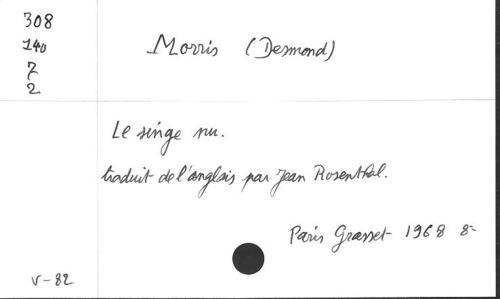 308
140
7
2
Morris (Desmond)
Le singe nu.
traduit de l'anglais par Jean Rosenthal.
Paris Grasset 1968 8=
V-82